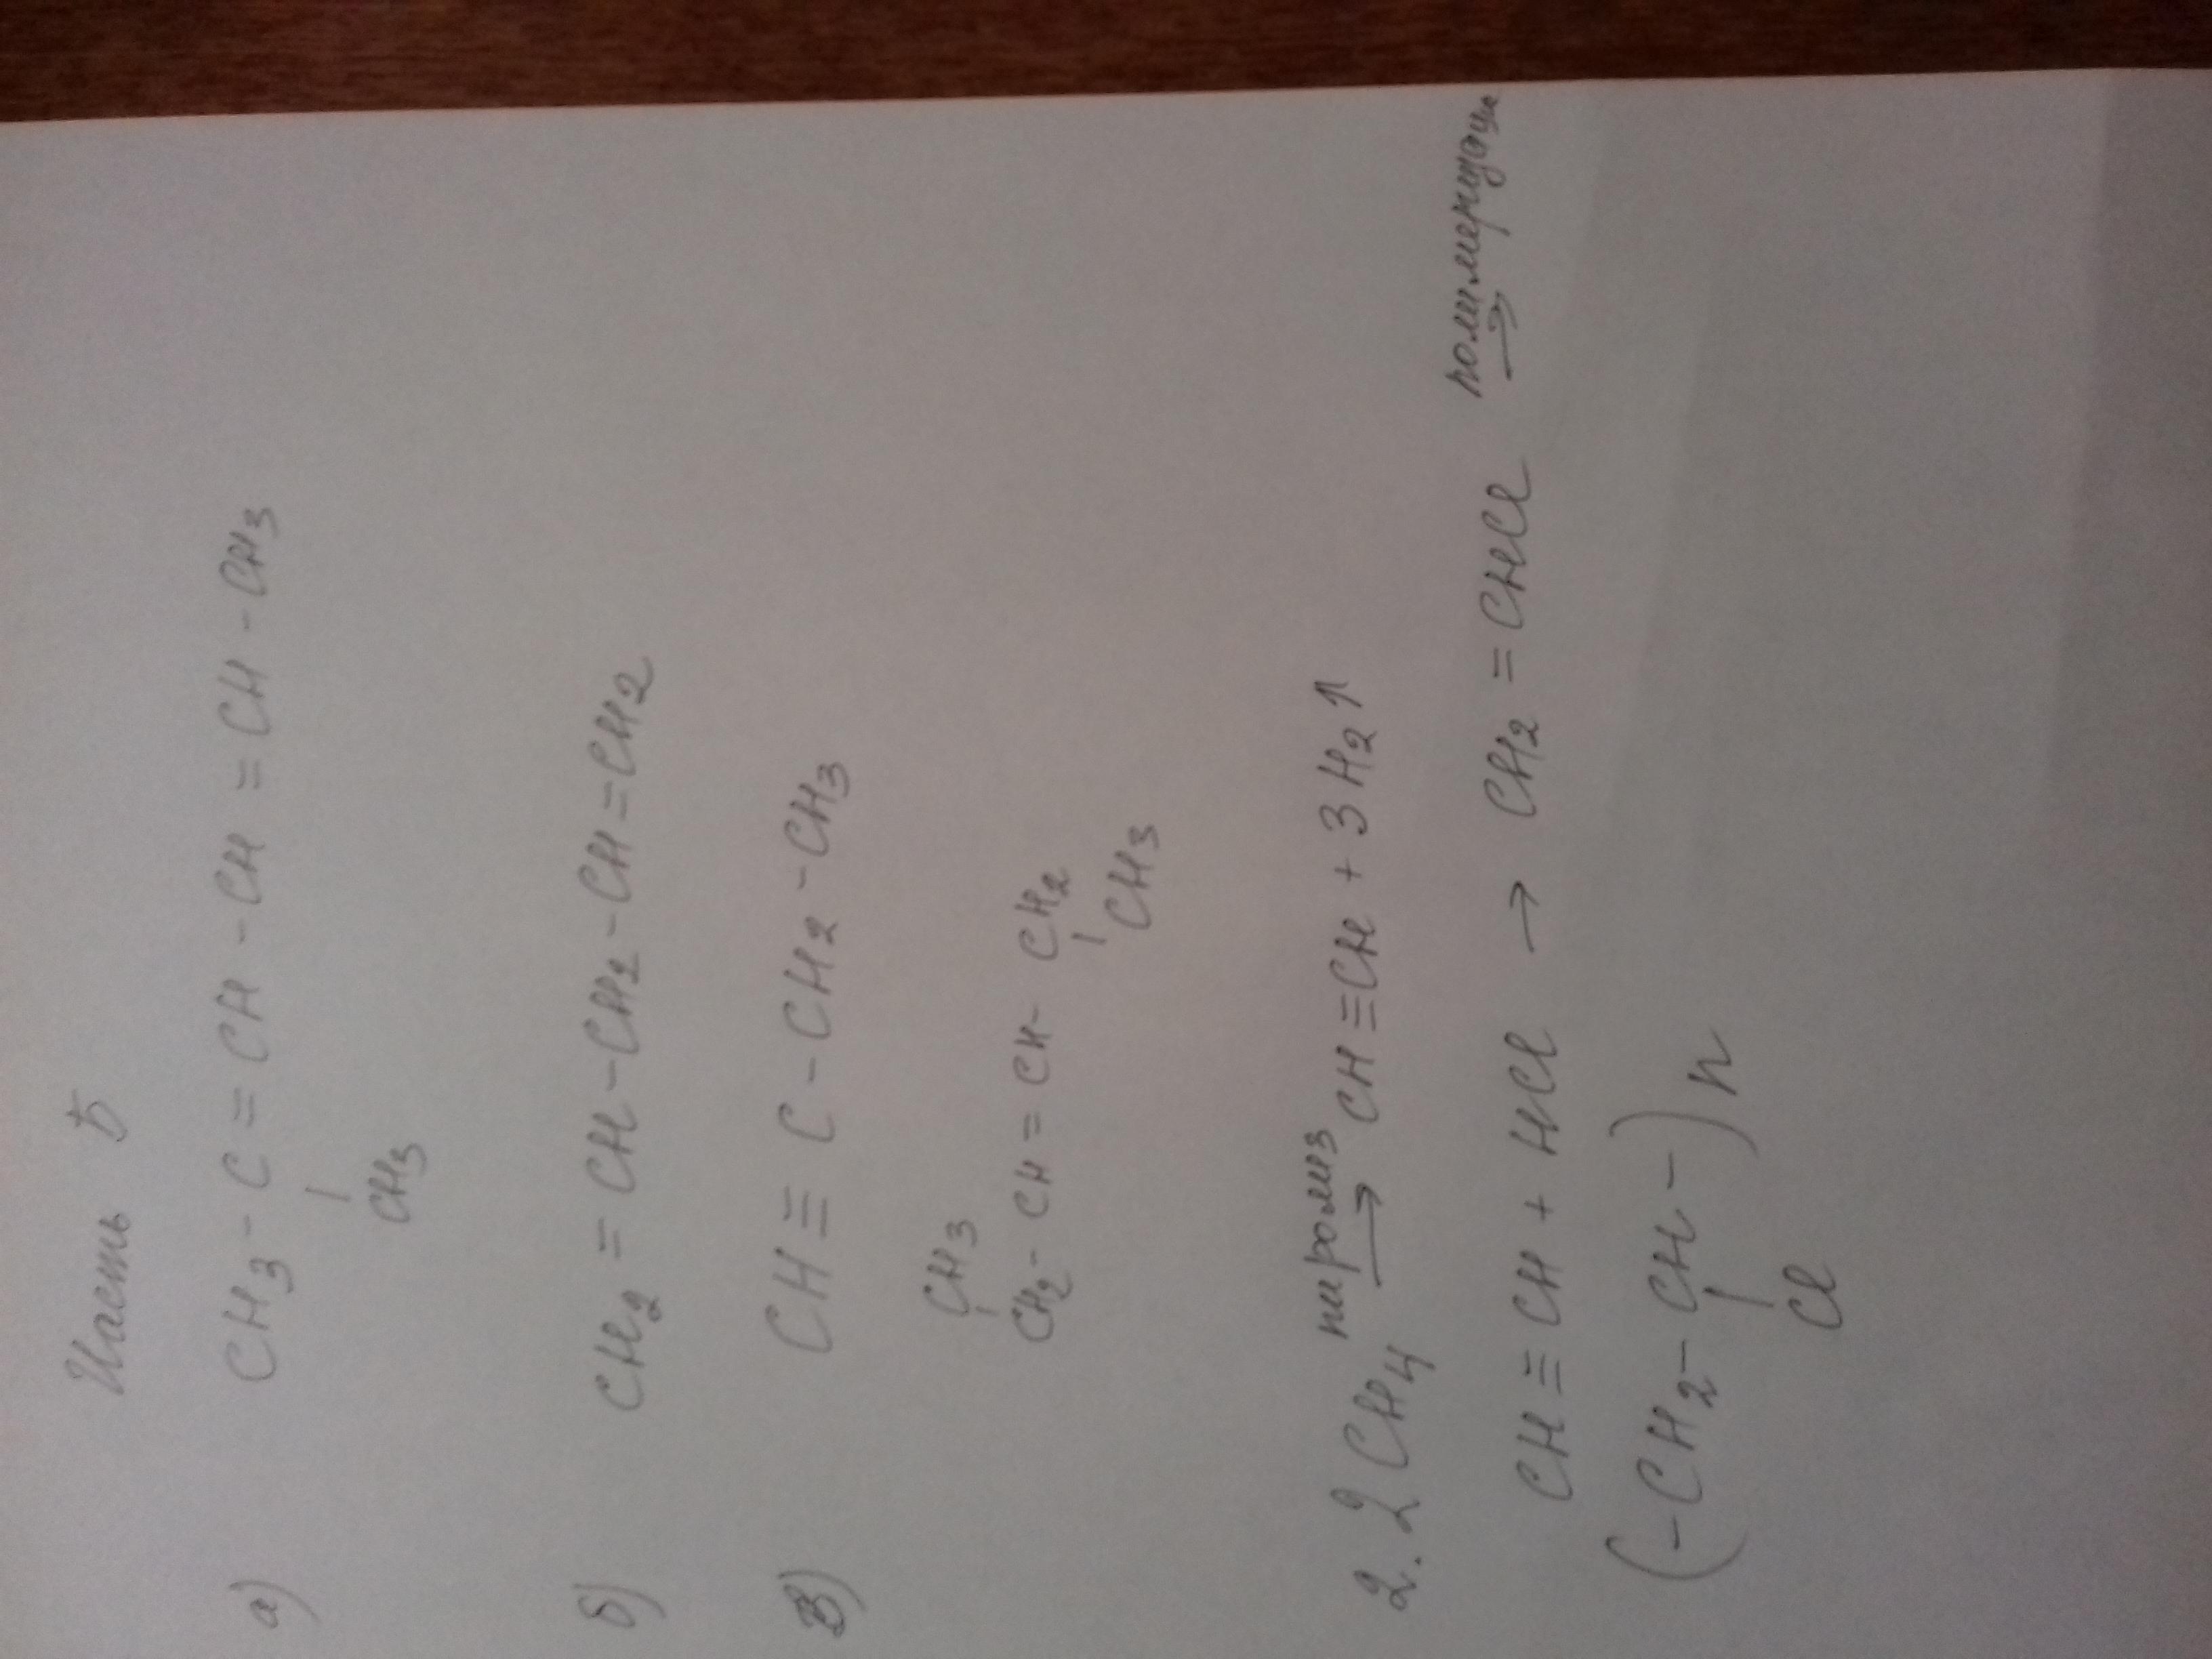 Часть Б
а) CH3 - C = CH - CH = CH - CH3
CH3
б) CH2 = CH - CH2 - CH = CH2
в) CH ≡ C - CH2 - CH3
CH3
CH2 - CH = CH - CH2
CH3
2. 2CH4 пиролиз → CH ≡ CH + 3H2↑
CH ≡ CH + HCl → CH2 = CHCl полимеризация →
(- CH2 - CH -)n
Cl